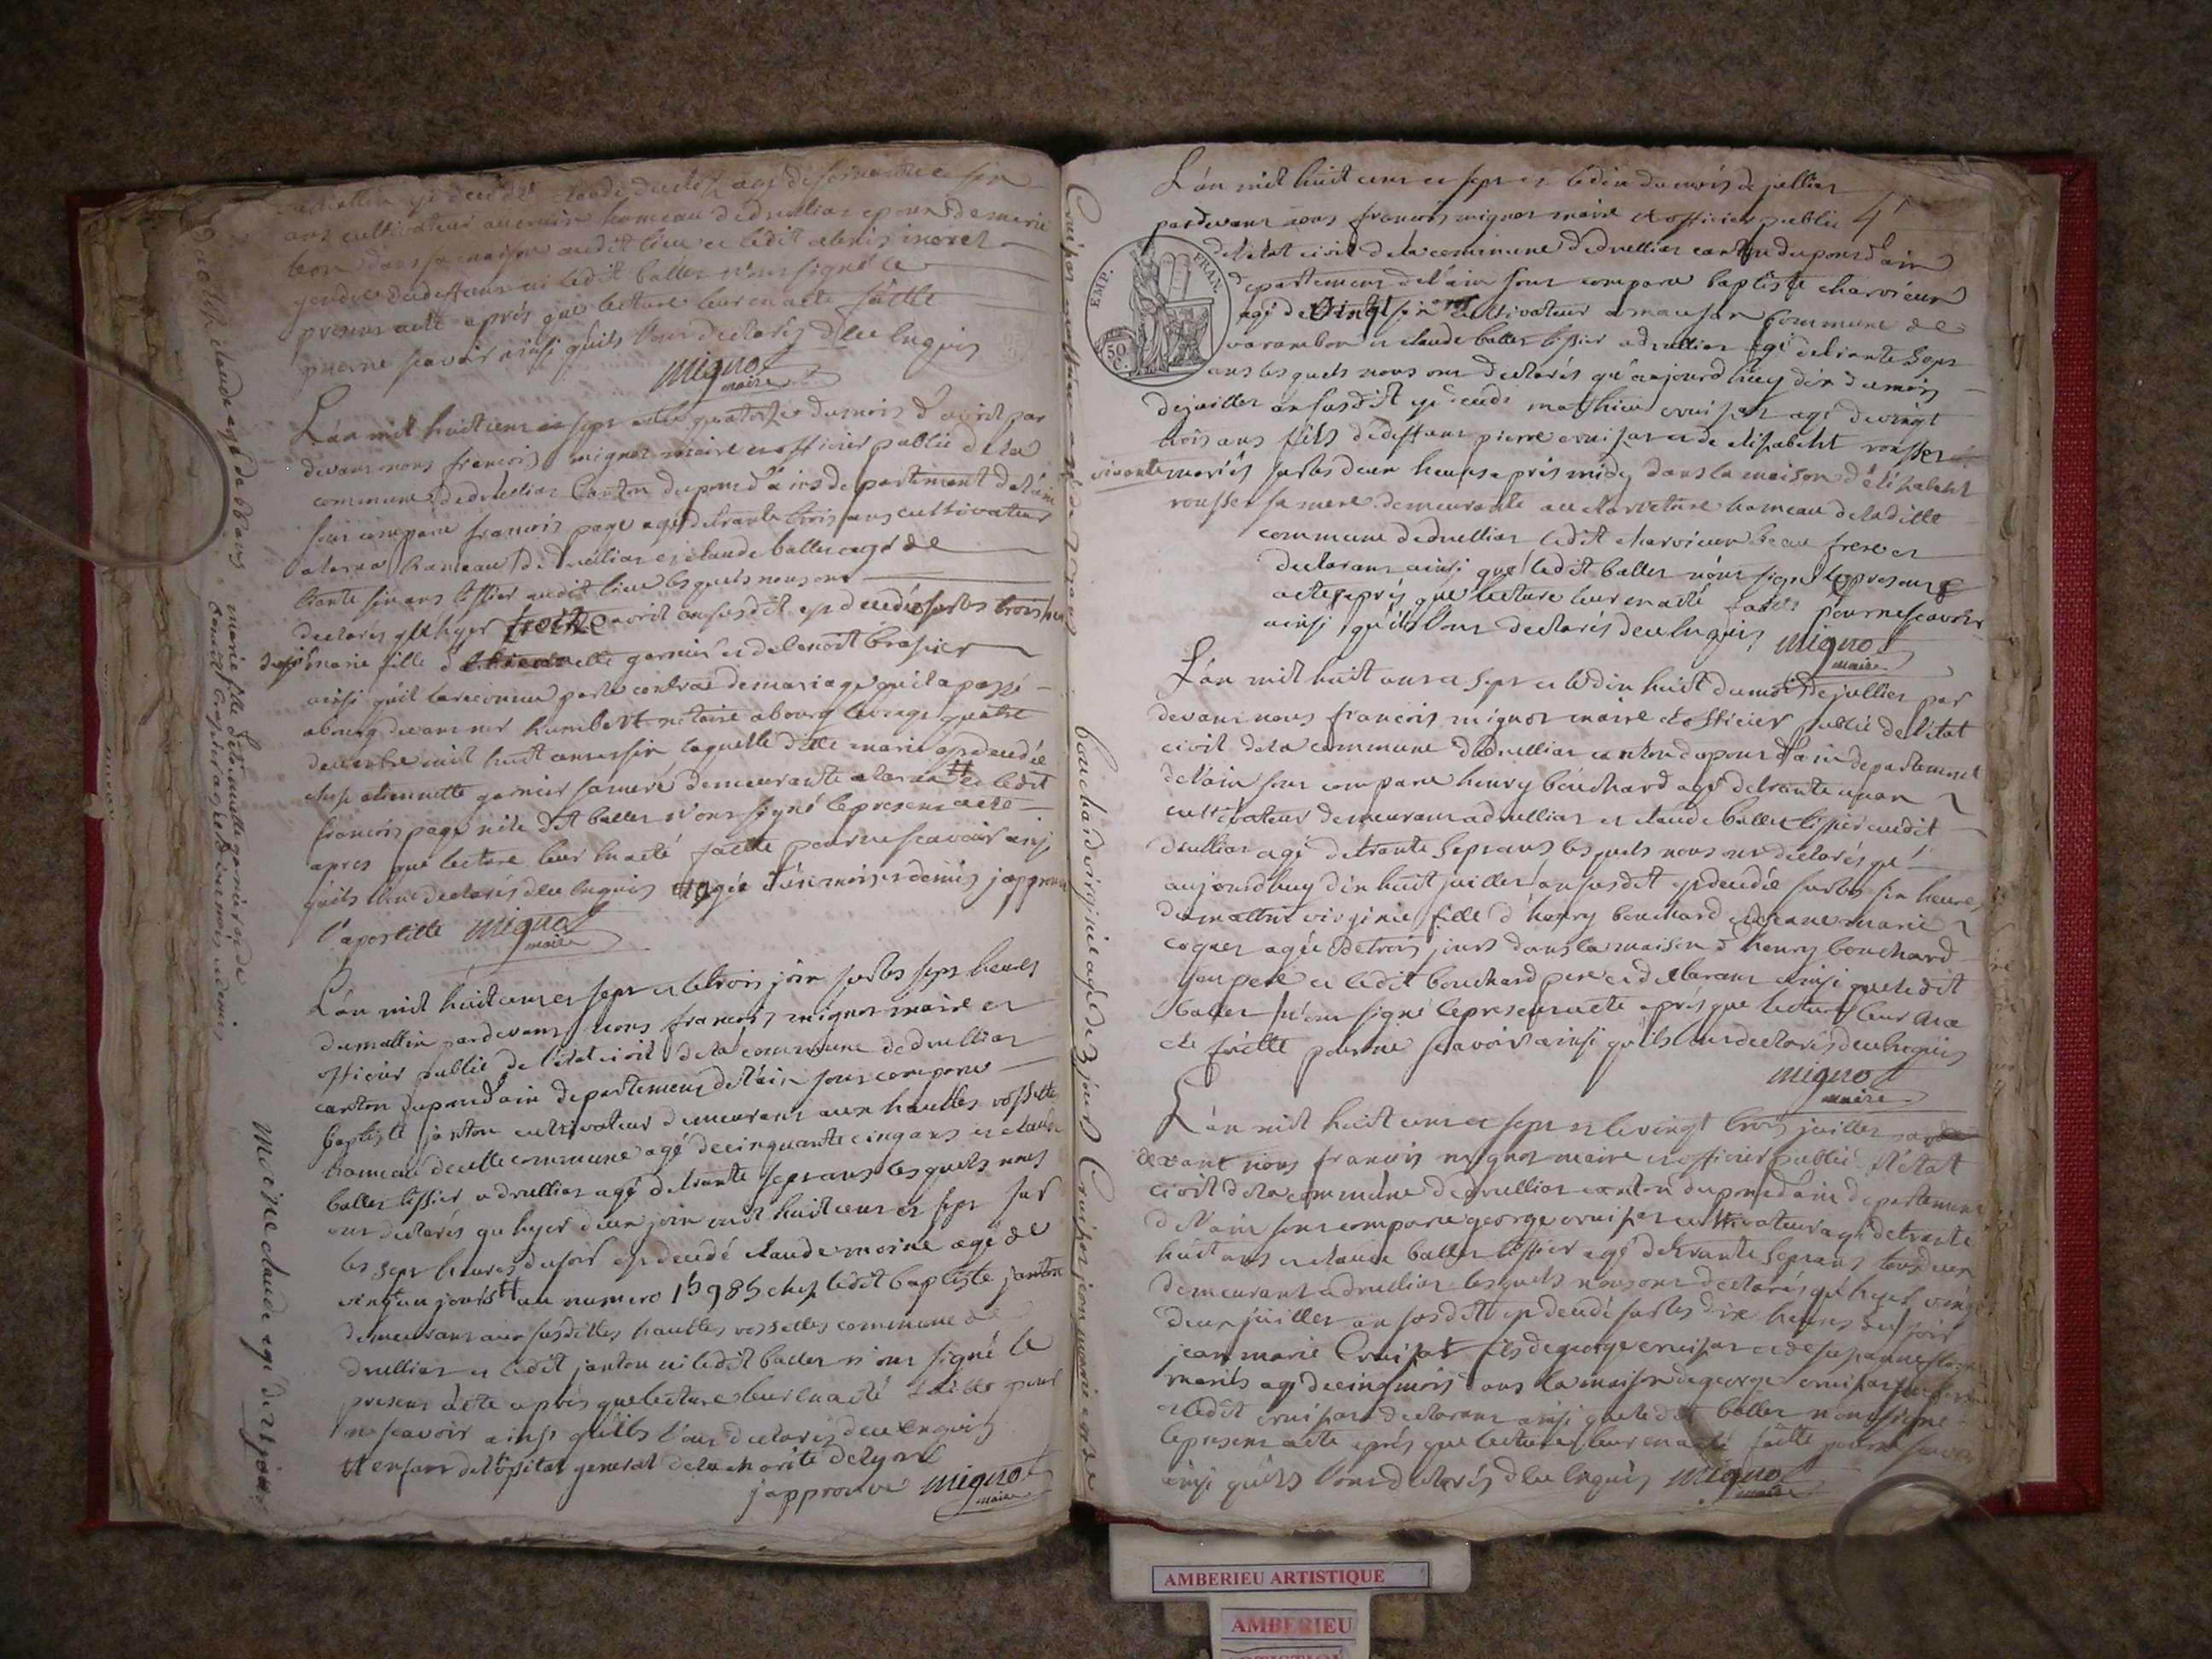 ans cultivateur hameau de druillias epoux de marie
dans sa maison audit lieu et ledit alexis moret
gendre dudeffunt ni ledit ballet n'ont signé le
present acte après que lecture leur en a eté faitte
pour ne scavoir ainsi quils l'ont declarés de ce enquis
mignot
maire
L'an mil huit cent et sept et le quatorze du mois d'avril par
devant nous francois mignot maire et officier public de la
commune de druillias canton du pont d'ain departement de l'ain
sont comparu francois page agé de trante trois ans cultivateur
hameau de druillias et claude ballet agé de
trante six ans tissier audit lieu lesquels nous ont
declarés que hyer treize avril an susdit est decedée sur les trois heures
marie fille d'etiennette garnier et de benoit brasier
ainsi quil la reconnue par le contrat de mariage quil a passé
a bourg devant me humbert notaire a bourg le vingt quatre
decembre mil huit cent six laquelle ditte marie est decedée
chez etiennette garnier sa mere demeurante et ledit
francois page ni le dit ballet n'ont signé le present acte
apres que lecture leur en a eté faitte pour ne scavoir ainsi
quils l'ont declarés de ce enquis agée d'un mois et demis j'approuve
l'apostille mignot
maire
L'an mil huit cent et sept et le trois join sur les sept heures
du mattin pardevant nous francois mignot maire et
officier public de l'etat civil de la commune de druillias
canton du pont d'ain departement de l'ain sont comparu
baptiste janton cultivateur demeurant aux hauttes vossettes
hameau de cette commune agé de cinquante cinq ans et claude
ballet tissier a druillias agé de trante sept ans lesquels nous
ont declarés qu'hyer deux join mil huit cent et sept sur
les sept heures du soir est decedé claude moine agé de
vingt un jours tt au numero 15985 chez ledit baptiste janton
demeurant aux susdittes hauttes vossettes commune de
druillias et ledit janton ni ledit ballet n'ont signé le
present acte après que lecture leur en a eté faitte pour
ne scavoir ainsi quils l'ont declarés de ce enquis
tt enfant de l'opital general de la charité de lyon
j'approuve mignot
maire
claude agé de 66 ans
marie fille d'etiennette garnier et de
benoit brasier agée d'un mois et demis
Moine claude agé de 21 jours
Cruisat mathieu agé de 23 ans
bouchard virginie agée de 3 jours
Cruisat jean marie agé de
L'an mil huit cent et sept et le dix du mois de juillier
pardevant nous francois mignot maire et officier public
de l'etat civil de la commune de druillias canton du pont d'ain
departement de l'ain sont comparu baptiste charvieux
agé de vingt six ans cultivateur a mausan commune de
varambon et claude ballet tissier a druillias agé de trante sept
ans lesquels nous ont declarés qu'aujourd'huy dix du mois
de juillet an susdit est decedé mathieu cruisat agé de vingt
trois ans fils de deffunt pierre cruisat et de elisabeht rousset
vivante mariés sur les deux heures après midy dans la maison d'elisabeht
rousset sa mere demeurante au hameau de la ditte
commune de druillias ledit charvieux beau frere et
declarant ainsi que ledit ballet n'ont signé le present
acte après que lecture leur en a eté faitte pour ne scavoir
ainsi quils l'ont declarés de ce enquis mignot
maire
L'an mil huit cent et sept et le dix huit du mois de juillier par
devant nous francois mignot maire et officier public de l'etat
civil de la commune de druillias canton du pont d'ain departement
de l'ain sont comparu henry bouchard agé de trante un an
cultivateur demeurant a druillias et claude ballet tissier audit
druillias agé de trante sept ans lesquels nous ont declarés que
aujourdhuy dix huit juillet an susdit est decedée sur les six heures
du mattin virginie fille d'henry bouchard et jeane marie
coquet agée de trois jours dans la maison d'henry bouchard
son pere et ledit bouchard pere et declarant ainsi que ledit
ballet n'ont signé le present acte après que lecture leur en a
eté faitte pour ne scavoir ainsi quils l'ont declarés de ce enquis
mignot
maire
L'an mil huit cent et sept et le vingt trois juillet par
devant nous francois mignot maire et officier public de l'etat
civil de la commune de druillias canton du pont d'ain departement
de l'ain sont comparu george cruisat cultivateur agé de trante
huit ans et claude ballet tissier agé de trante sept ans tous deux
demeurant a druillias lesquels nous ont declarés qu'hyer vingt
deux juillet an susdit est decedé sur les dix heures du soir
jean marie Cruisat fils de george cruisat et de susanne
mariés agé de cinq mois dans la maison de george cruisat
et ledit cruisat declarant ainsi que ledit ballet n'ont signé
le present acte après que lecture leur en a eté faitte pour ne scavoir
ainsi quils l'ont declarés de ce enquis mignot
maire
EMP. FRAN.
50 C.
AMBERIEU ARTISTIQUE
AMBERIEU